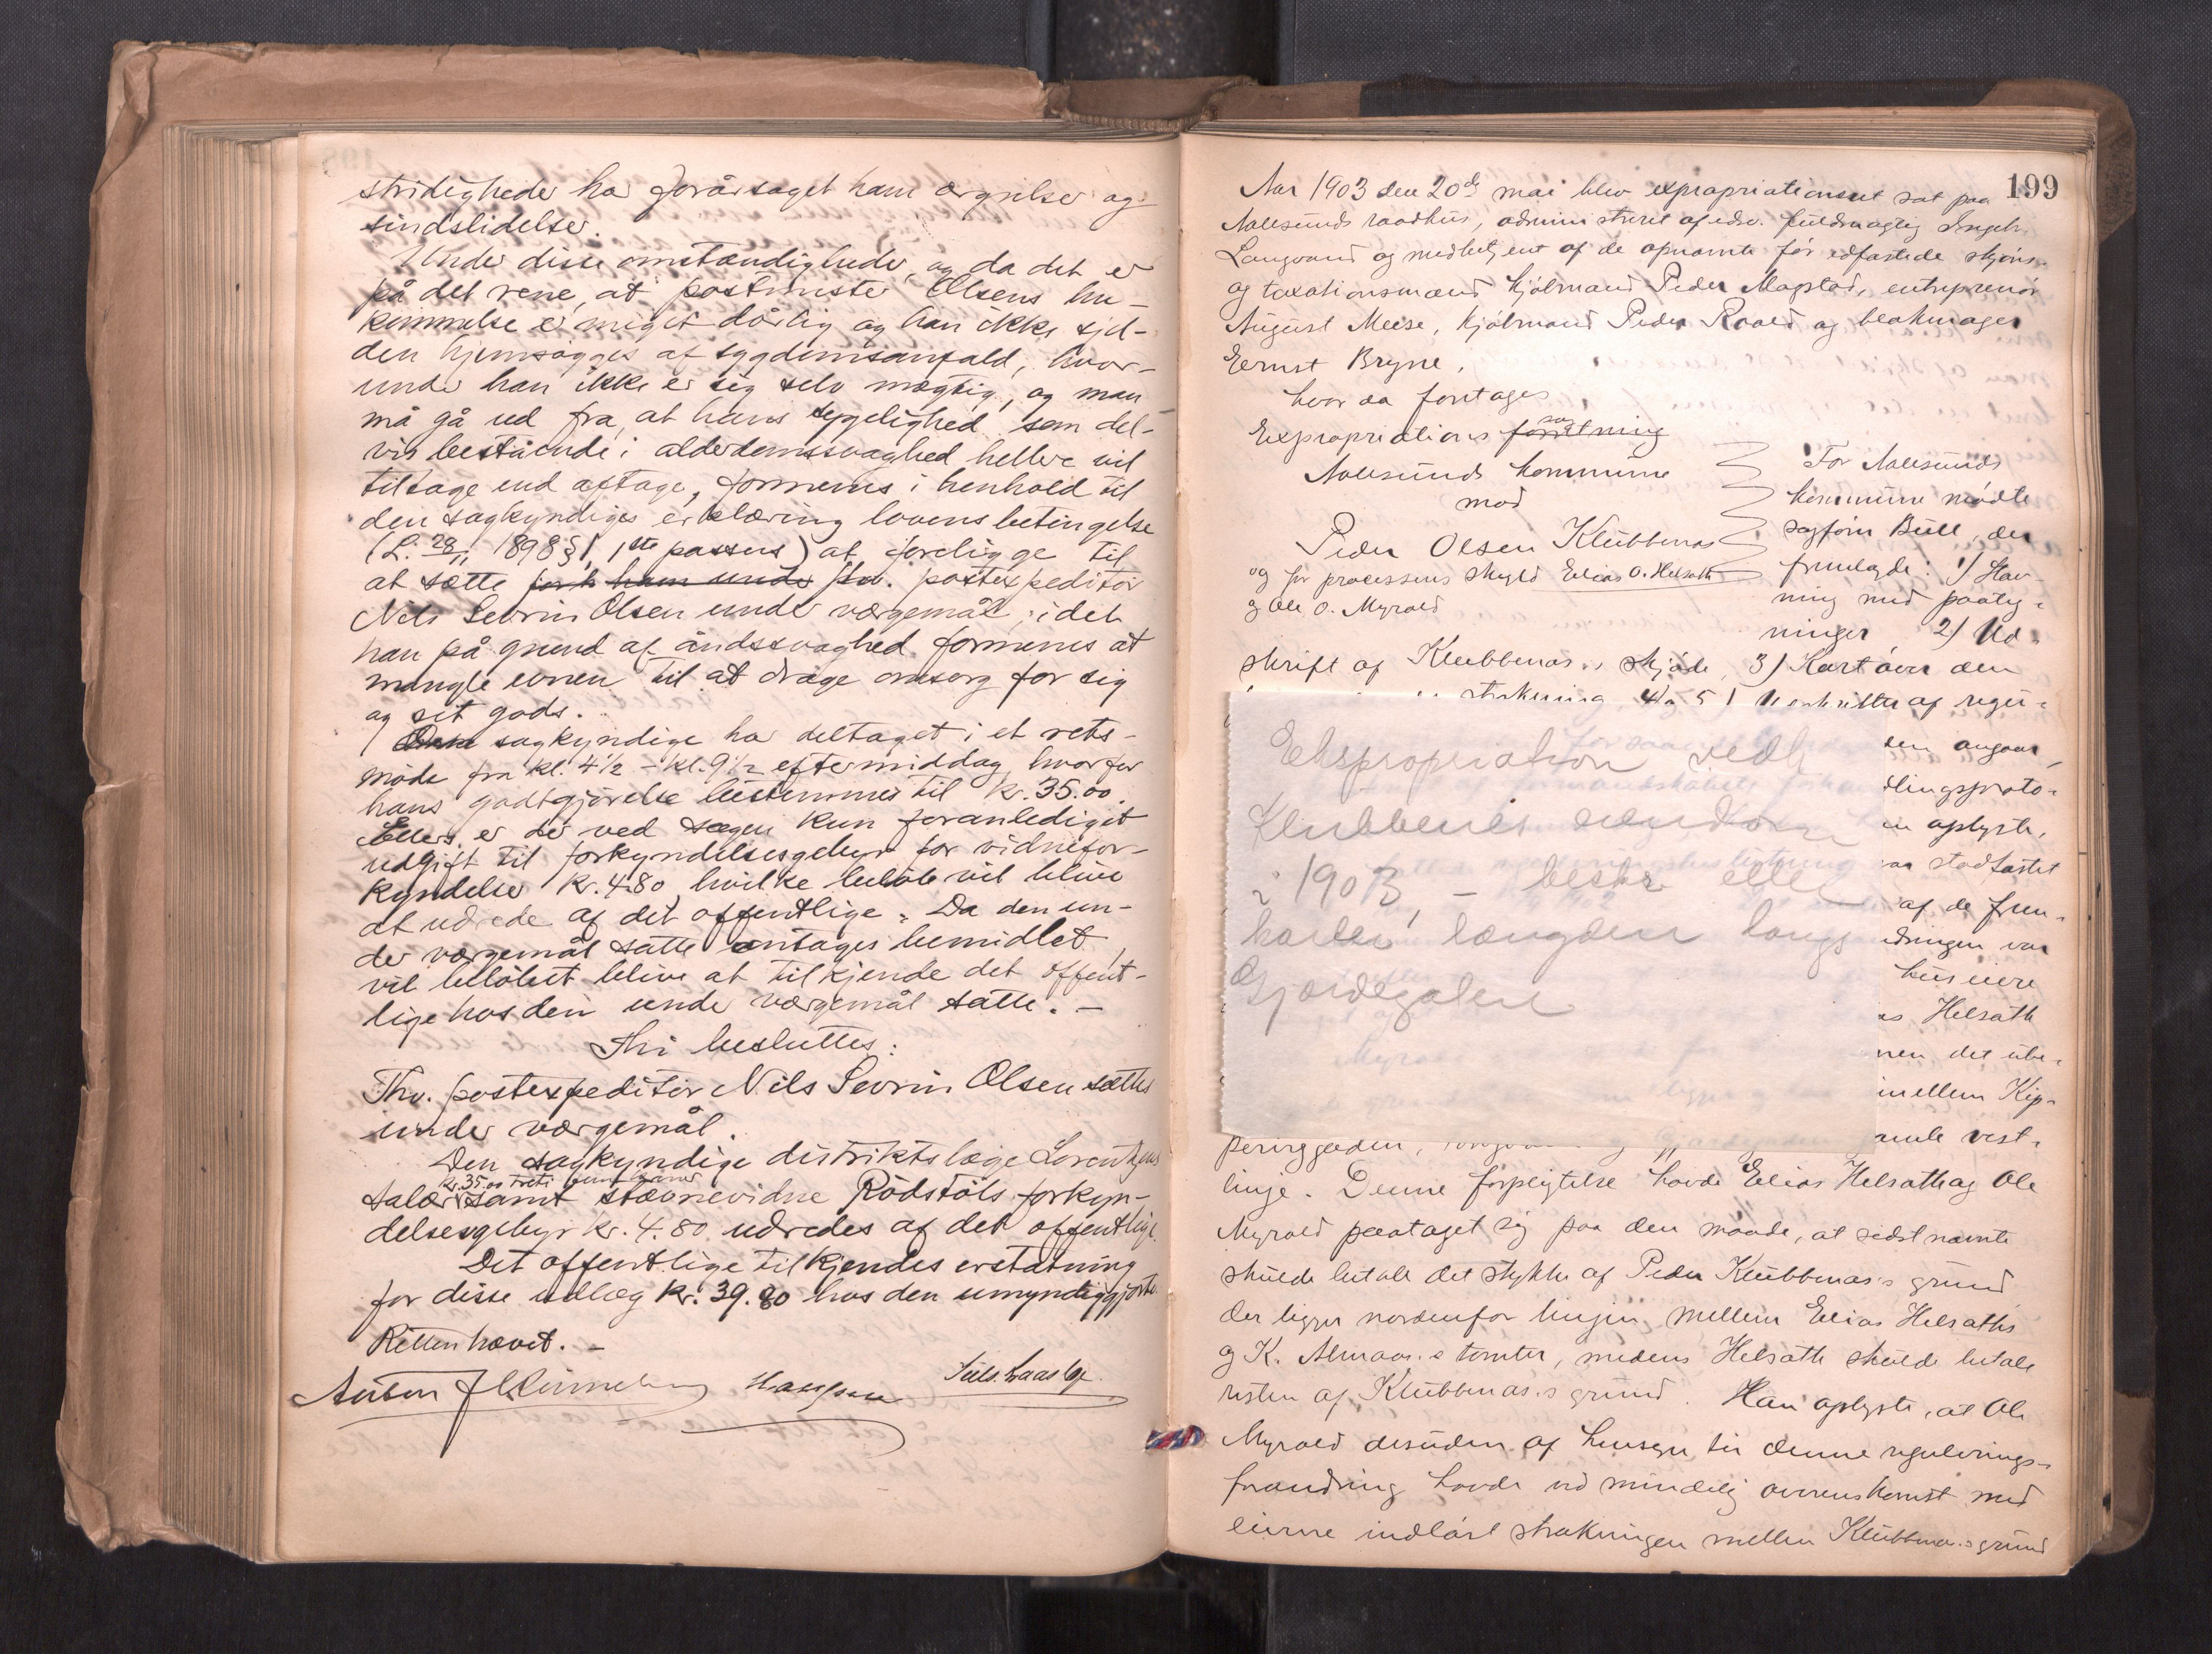 stridigheder ha forårsaget ham ærgrelse og
sindslidelse.
Under disse omstændigheder, og da det er
på det rene, at postmester Olsens hu-
kommelse er meget dårlig og han ikke sjel-
den hjemsøgges af sygdomsanfald, hvor-
under han ikke er sig selv mægtig, og man
må gå ud fra, at hans sygelighed som del-
vis bestående i alderdomssvaghed heller vil
tiltage end aftage, formenes i henhold til
den sagkyndiges erklæring lovens betingelse
(L. 28/11 1898 § 1, 1ste passus) at foreligge til
at sætte fhv. postexpeditør
Nils Sevrin Olsen under værgemål, idet
han på grund af åndssvaghed formenes at
mangle evnen til at drage omsorg for sig
og sit gods.
Den sagkyndige ha deltaget i et rets-
møde fra kl. 4 1/2 - kl. 9 1/2 eftermiddag, hvorfor
hans godtgjørelse bestemmes til kr. 35.00.
Ellers er der ved sagen kun foranlediget
udgift til forkyndelsesgebyr for vidnefor-
kyndelse kr. 4.80, hvilke beløb vil blive
at udrede af det offentlige. Da den un-
der værgemål satte antages bemidlet,
vil beløbet blive at tilkjende det offent-
lige hos den under værgemål satte. -
Thi besluttes:
Fhv. postexpeditør Nils Sevrin Olsen sættes
under værgemål.
Den sagkyndige distriktslæge Lorentzens
kr. 35.00 treti fem kroner
salær samt stævnevidne Rødstøls forkyn-
delsesgebyr kr. 4.80 udredes af det offentlige.
Det offentlige tilkjendes erstatning
for disse udlæg kr. 39.80 hos den umyndiggjorte.
Retten hævet. -
Anton
199
Aar 1903 den 20de mai blev expropriationsret sat paa
Aalesunds raadhus, administreret af edsv. fuldmægtig Ingebr.
Langvand og medbetjent af de opnævnte før edfæstede skjøns-
og taxationsmænd kjøbmand Peder Mogstad, entreprenør
August Meese, kjøbmand Peder Roald og blokmager
Ernst Bryne,
hvor da foretages
sag
Expropriations forretning
Aalesunds kommune
mod
Peder Olsen Klubbenæs
og for processens skyld Elias O. Helsæth
og Ole O. Myrold
For Aalesunds
kommune mødte
sagfører Bull, der
fremlagde: 1) Stæv-
ning med paateg-
ninger 2) Ud-
skrift af Klubbenæs's skjøde, 3) Kart over den
strækning 4) og 5) Udskrifter af regu-
den angaar,
dlingsproto-
en oplyste,
var stadfæstet
af de frem-
dringen var
huseiere
as Helsæth
nen det ube-
mellem Kip-
Ekspropriation vedk
Klubbenes
i 1903, - beskr eller
længden langs
Gjærdegaten
peringgaden, amle vest-
linje. Denne forpligtelse havde Elias Helsæth og Ole
Myrold paataget sig paa den maade, at sidstnævnte
skulde betale det stykke af Peder Klubbenæs's grund,
der ligger nordenfor linjen mellem Elias Helsæths
og K. Almaas's tomter, medens Helsæth skulde betale
resten af Klubbenæs's grund. Han oplyste, at Ole
Myrold desuden af hensyn til denne regulerings-
forandring havde ved mindelig overenskomst med
eierne indløst strækningen mellem Klubbenæs's grund